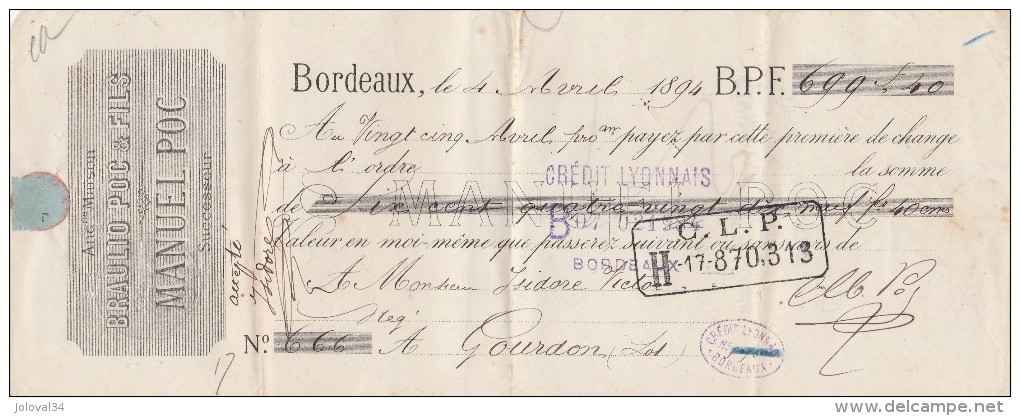 Ance. Mon Muson
BRAULIO POC & FILS
MANUEL POC
Successeur
Bordeaux, le 4 Avril 1894 B.P.F. 699 f 40
Au Vingt cinq Avril prox payez par cette première de change
à l'ordre la somme
CRÉDIT LYONNAIS
de Six cent quatre vingt dix neuf fs 40 cms
MANUEL POC
B
BORDEAUX
C. L. P.
H-17-870,313
Valeur en moi-même que passerez suivant ou sans avis de
A Monsieur Isidore Victor
Neg
accepté
Isidore
M. Poc
No. 666 A Gourdon (Lot)
CRÉDIT LYONNAIS
BORDEAUX
17
joloval34
delcampe.net